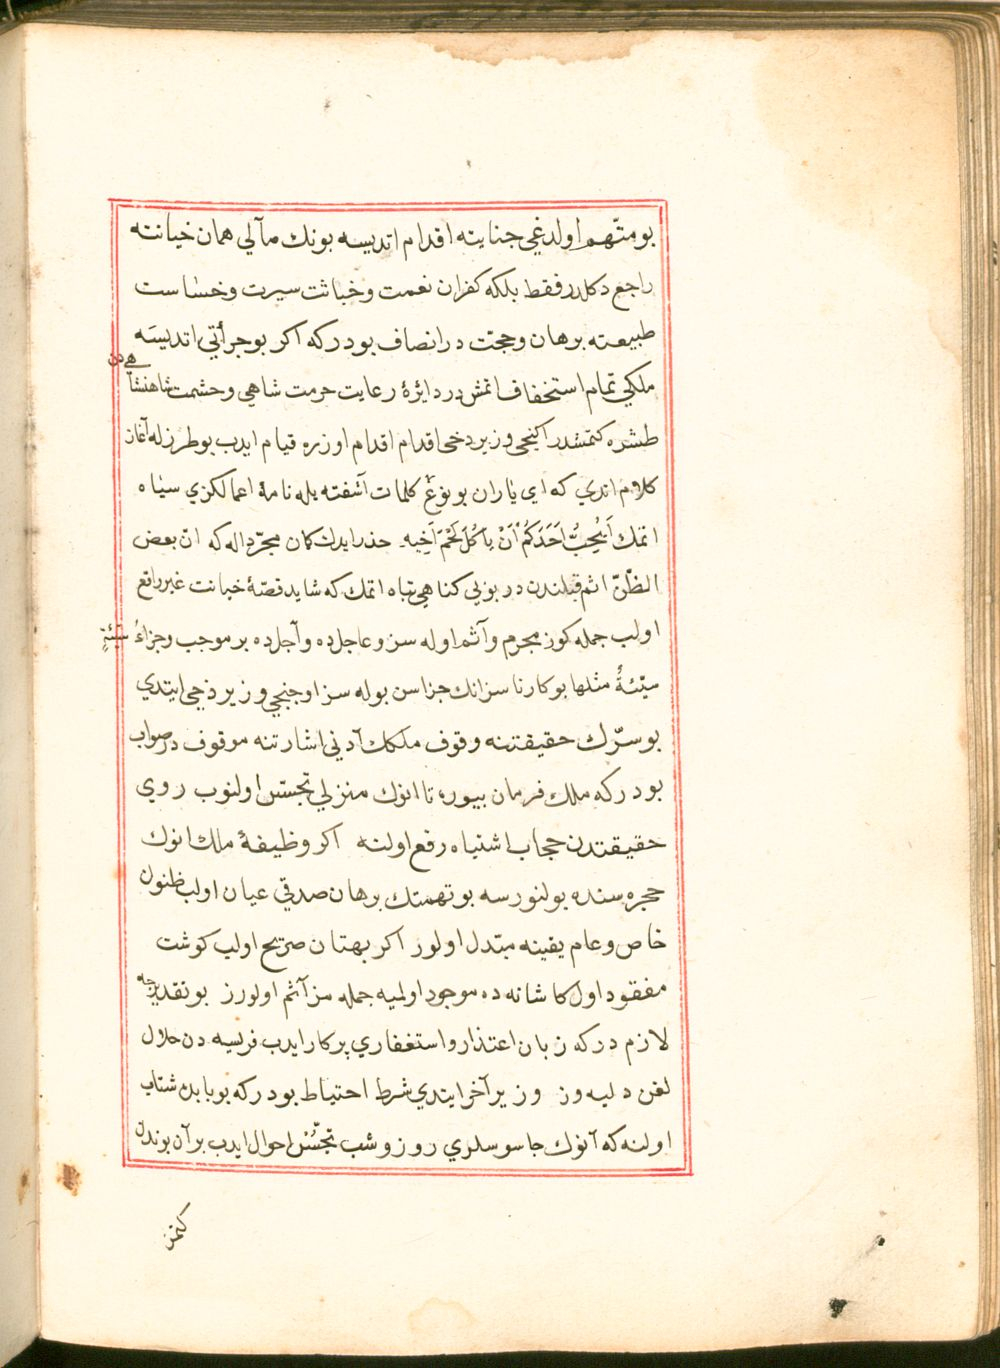 بو متّهم اولدغي جنايته اقدام اتديسه بونك مآلي همان خيانته
راجع دكلدر فقط بلكه كفران نعمت وخباثت سيرت وخساست
طبيعته برهان وحجت در انصاف بودركه اكر بو جرأتي اتديسَه
ملكي تمام استخفاف اتمش در دايرهٔ رعايت حرمت شاهي وحشمت شاهنشاهيدن
طشره كتمشدر اكنجي وزير دخى اقدام اقدام اوزره قيام ايدب بو طرزله آغاز
كلام اتدي كه اى ياران بو نوع كلمات آشفته يله نامهٔ اعمالكزي سياه
اتمك اَيُحِبُّ اَحَدَكُمْ اَنْ يَأكُلَ لَحْمَ اَخِيهِ حذر ايدك كمان مجرّد اله كه انّ بعض
الظّنّ اثم قبلندن در بو بى كناهى تباه اتمك كه شايد قصّهٔ خيانت غير واقع
اولب جمله كوز مجرم وآثم اوله سز وعاجلده وآجلده بر موجب وجزاءُ سيّئةٍ
سيّئةٌ مثلها بو كار ناسزانك جزاسن بوله سز اوجنجي وزير دخي ايتدي
بو سرّك حقيقتنه وقوف ملكك آدنى اشارتنه موقوف در صواب
بودركه ملك فرمان بيوره تا انوك منزلي تجسّس اولنوب روي
حقيقتدن حجاب اشتباه رفع اولنه اكر وظيفهٔ ملك انوك
حجره سنده بولنورسه بو تهمتك برهان صدقي عيان اولب ظنون
خاص وعام يقينه مبتدل اولور اكر بهتان صريح اولب كوشت
مفقود اول كاشانه ده موجود اولميه جمله مز آثم اولورز بو تقديرجه
لازم دركه زبان اعتذار واستغفاري پركار ايدب فريسه دن حلال
لغن دليه وز وزير آخر ايتدي شرط احتياط بودركه بو بابده شتاب
اولنه كه آنوك جاسوسلري روز وشب تجسّس احوال ايدب بر آن بوندن
كتمز